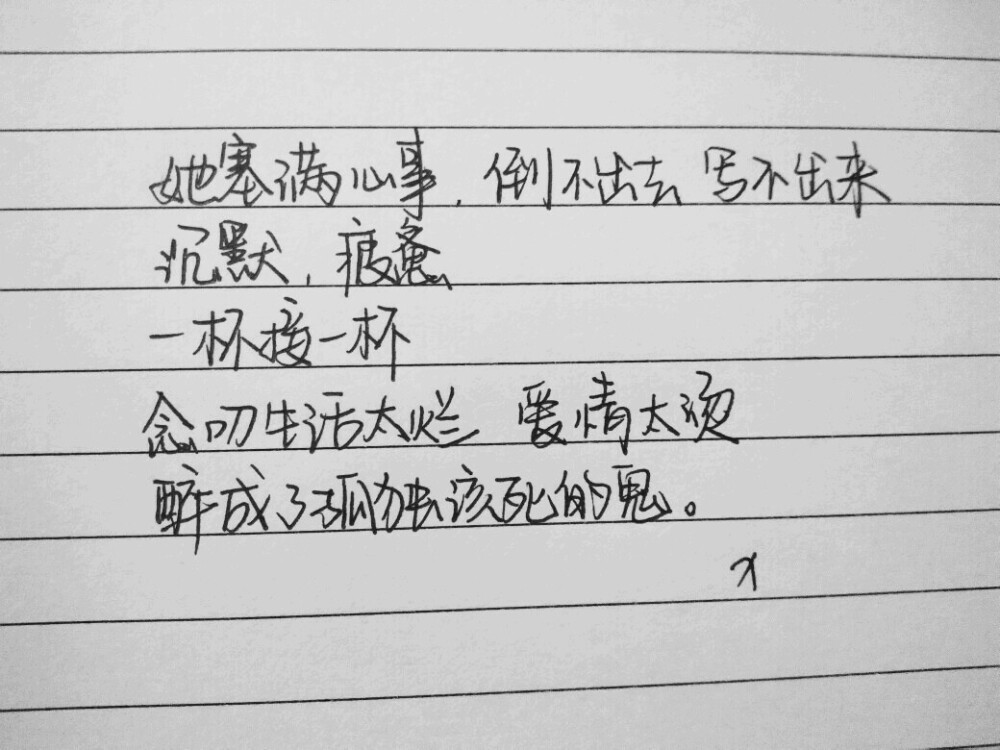 她塞满心事,倒不出去 写不出来
沉默,疲惫
一杯接一杯
念叨生活太烂 爱情太烫
醉成了孤独该死的鬼。
x